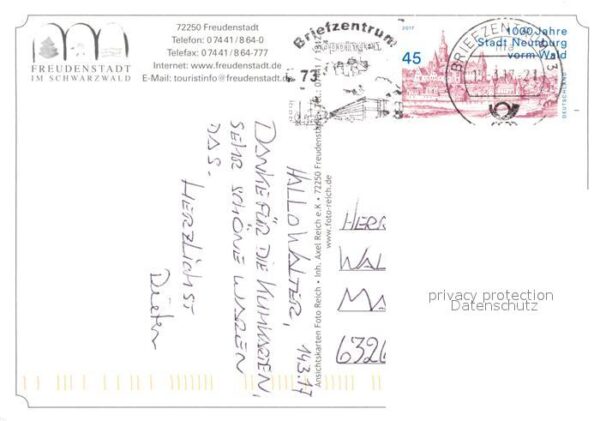 FREUDENSTADT
IM SCHWARZWALD
72250 Freudenstadt
Telefon: 0 74 41 / 8 64-0
Telefax: 0 74 41 / 8 64-777
Internet: www.freudenstadt.de
E-Mail: touristinfo@freudenstadt.de
Briefzentrum
73
2017
45
1000 Jahre
Stadt Neunburg
vorm Wald
DEUTSCHLAND
BRIEFZENTRUM
73
HALLO WALTER, 14.3.17
DANKE FÜR DIE KUHKARTEN,
SEHR SCHÖNE WAREN
DAS.
HERZLICHST
Dieter
Ansichtskarten Foto Reich • Inh. Axel Reich e.K • 72250 Freudenstadt
www.foto-reich.de
HERR
WAL
MA
6326
privacy protection
Datenschutz